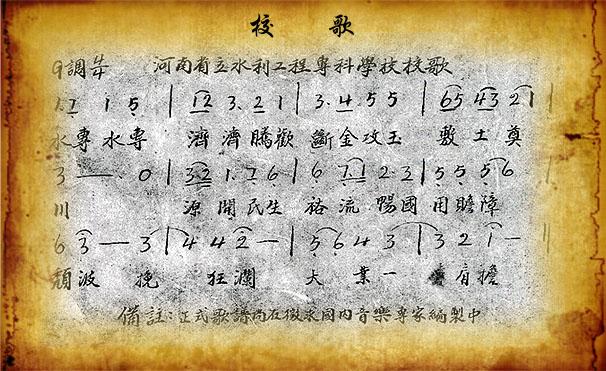 校歌
G調 4/4 河南省立水利工程專科學校校歌
1.1 1 5 | 12 3.2 1 | 3.4 5 5 | 65 43 2 1 |
水專水專 濟濟騰歡 斷金攻玉 敷土奠
3 — . 0 | 3.2 1.7 6 | 6 7.1 2.3 | 5 5 5 6
川 源開民生 裕流暢國用贍障
6 3 — 3 | 4 4 2 — | 5 6 4 3 | 3 2 1 —
頹波挽 狂瀾 大業一肩擔
備註:正式歌譜尚在徵求國內音樂專家編製中